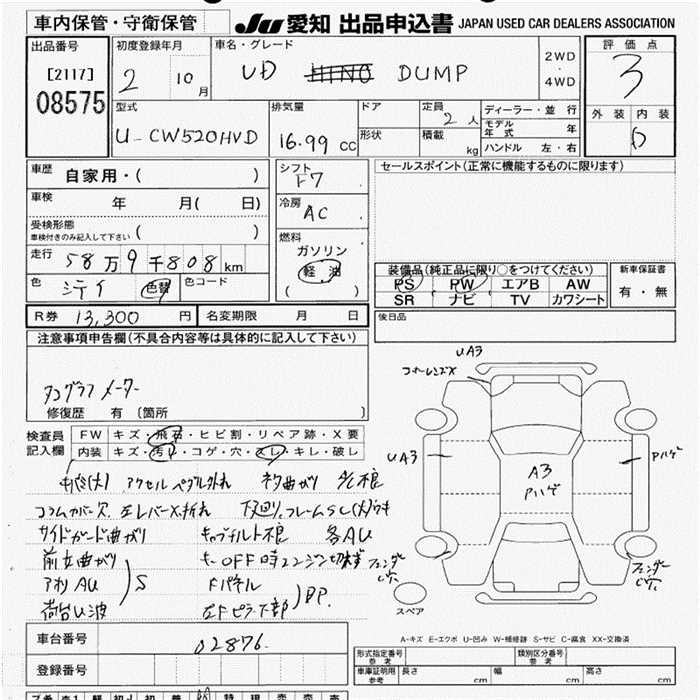 車内保管・守衛保管
JU 愛知 出品申込書 JAPAN USED CAR DEALERS ASSOCIATION
出品番号 初度登録年月 車名・グレード 2WD・4WD 評価点
[2117] 2 10月 UD HINO DUMP 3
08575
型式 排気量 ドア 定員 2人 ディーラー・並行 外装 内装
U-CW520HVD 16.99cc 形状 積載 kg モデル年式 年 D
ハンドル 左・右
車歴 自家用・( ) シフト F7 セールスポイント(正常に機能するものに限ります)
車検 年 月( 日) 冷房 AC
受検形態 車検付きのみ記入して下さい ( )
燃料 ガソリン 軽油 ( )
走行 58万9千808km
装備品(純正品に限り○をつけてください) 新車保証書
色 シテイ 色替 色コード PS PW エアB AW 有・無
SR ナビ TV カワシート
R券 13,300円 名変期限 月 日 後日品
注意事項申告欄(不具合内容等は具体的に記入して下さい)
タコグラフ メーター
修復歴 有 〔箇所 〕
検査員記入欄 FW キズ・飛石・ヒビ割・リペア跡・X要
内装 キズ・汚れ・コゲ・穴・スレ・キレ・破し
アクセルペダル外れ
コラムカバー欠 左レバーX折れ 下回り、フレームSC(大)
サイドガード曲がり キャブチルト不良 各AU
前 曲がり キーOFF時エンジン切れず
アオリAU S Fパネル
荷台U波 左Fピラー下部 BP
UA3
コーナーレンズX
UA3
A3
アハゲ
アハゲ
フェンダー
C穴
フェンダー
C穴
スペア
車台番号 02876
A-キズ E-エクボ U-凹み W-補修跡 S-サビ C-腐食 XX-交換済
登録番号
形式指定番号 参考 類別区分番号 参考
車庫証明用 参考 長さ cm 幅 cm 高さ cm